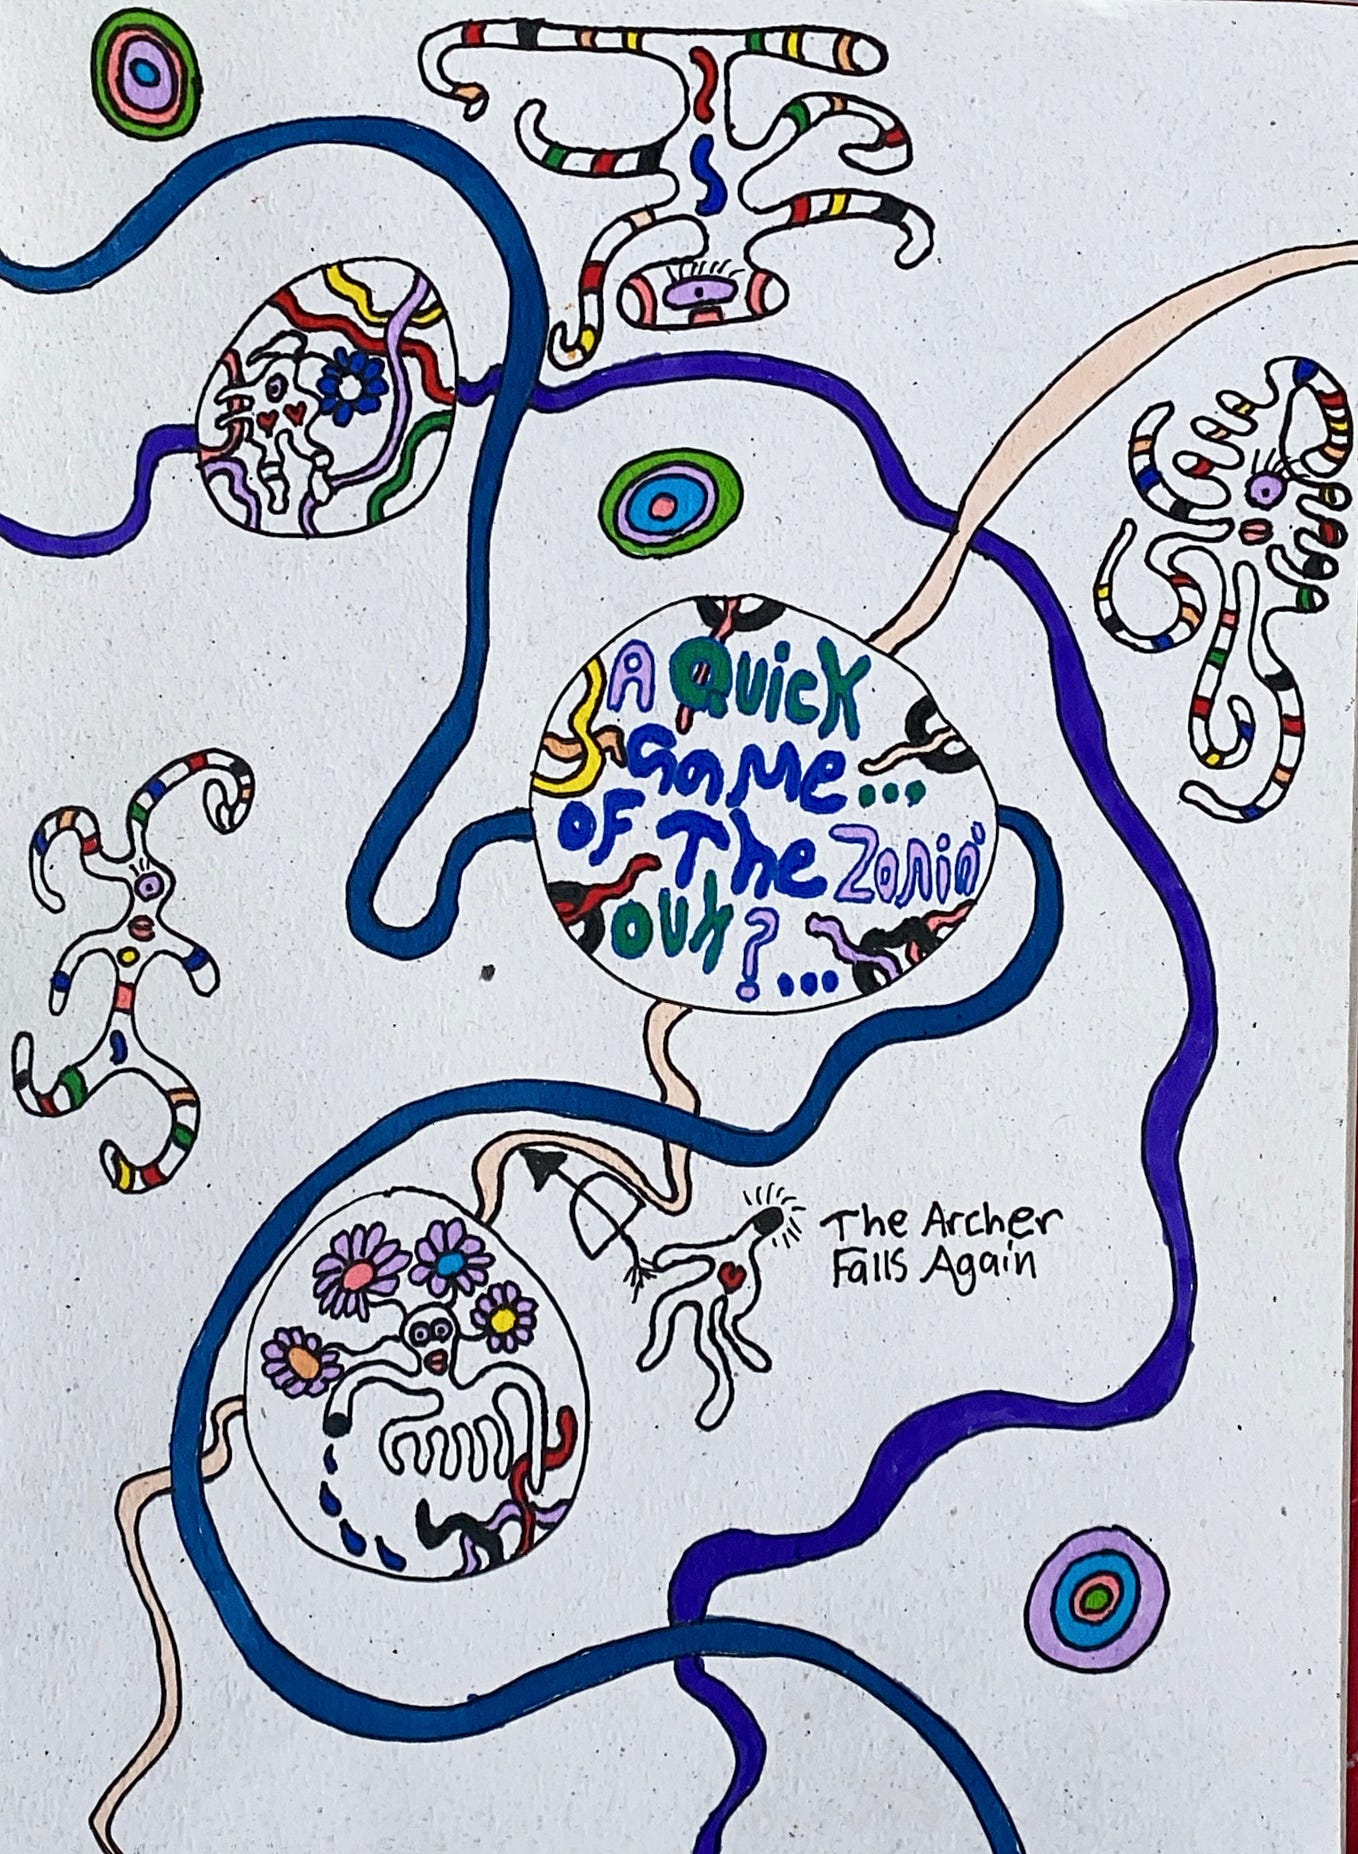 A Quick
Game...
OF The Zonin'
Out?...
The Archer
Falls Again